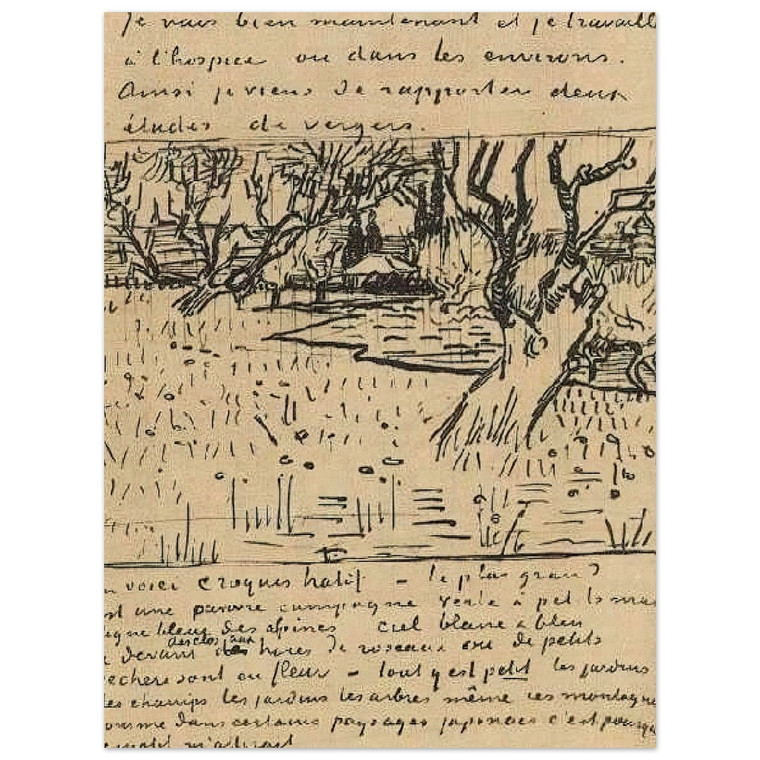 Je vais bien maintenant et je travaille
à l'hospice ou dans les environs.
Ainsi je viens de rapporter deux
études de vergers.
voici croquis hatif – le plus grand
une pauvre campagne verte à pet ts mas
bleue des alpines ciel blanc & bleu
devant des clos aux haies de roseaux où de petits
pechers sont en fleur – tout y est petit les jardins
les champs les jardins les arbres même ces montagnes
comme dans certains paysages japonais c'est pourquoi
m'attirait